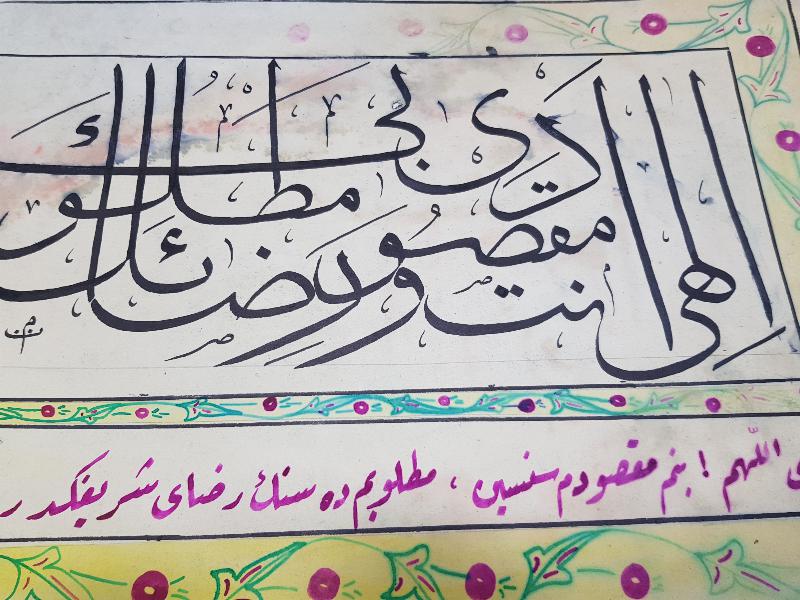 الهى انت مقصودى ورضائك مطلوبى
اللّهم ! بنم مقصودم سنسین ، مطلوبم ده سنك رضاى شریفكدر